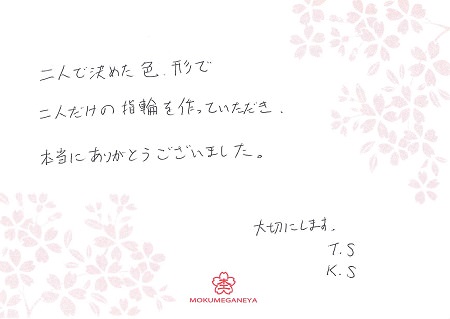 二人で決めた色、形で
二人だけの指輪を作っていただき、
本当にありがとうございました。
大切にします。
T.S
K.S
MOKUMEGANEYA